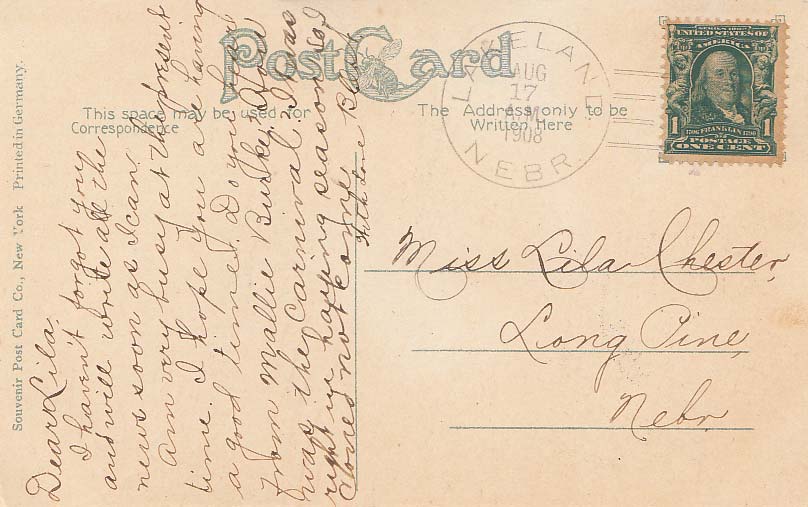 Souvenir Post Card Co., New York Printed in Germany.
Post Card
This space may be used for
Correspondence
The Address only to be
Written Here
LAKELAND
NEBR.
AUG
17
AM
1908
SERIES 1902
UNITED STATES OF
AMERICA
1706 FRANKLIN 1790
POSTAGE
1 ONE CENT 1
Miss Lila Chester,
Long Pine,
Nebr.
Dear Lila,
I haven't forgot you
and will write all the
news soon as I can.
Am very busy at the present
time. I hope you are having
a good time. Do you hear
from Mallie Burkey. How
was the Carnival. I was
right in haying season so I
could not come.
With Love